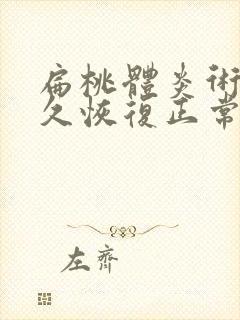 扁桃體炎術
久恢復正常
左齊